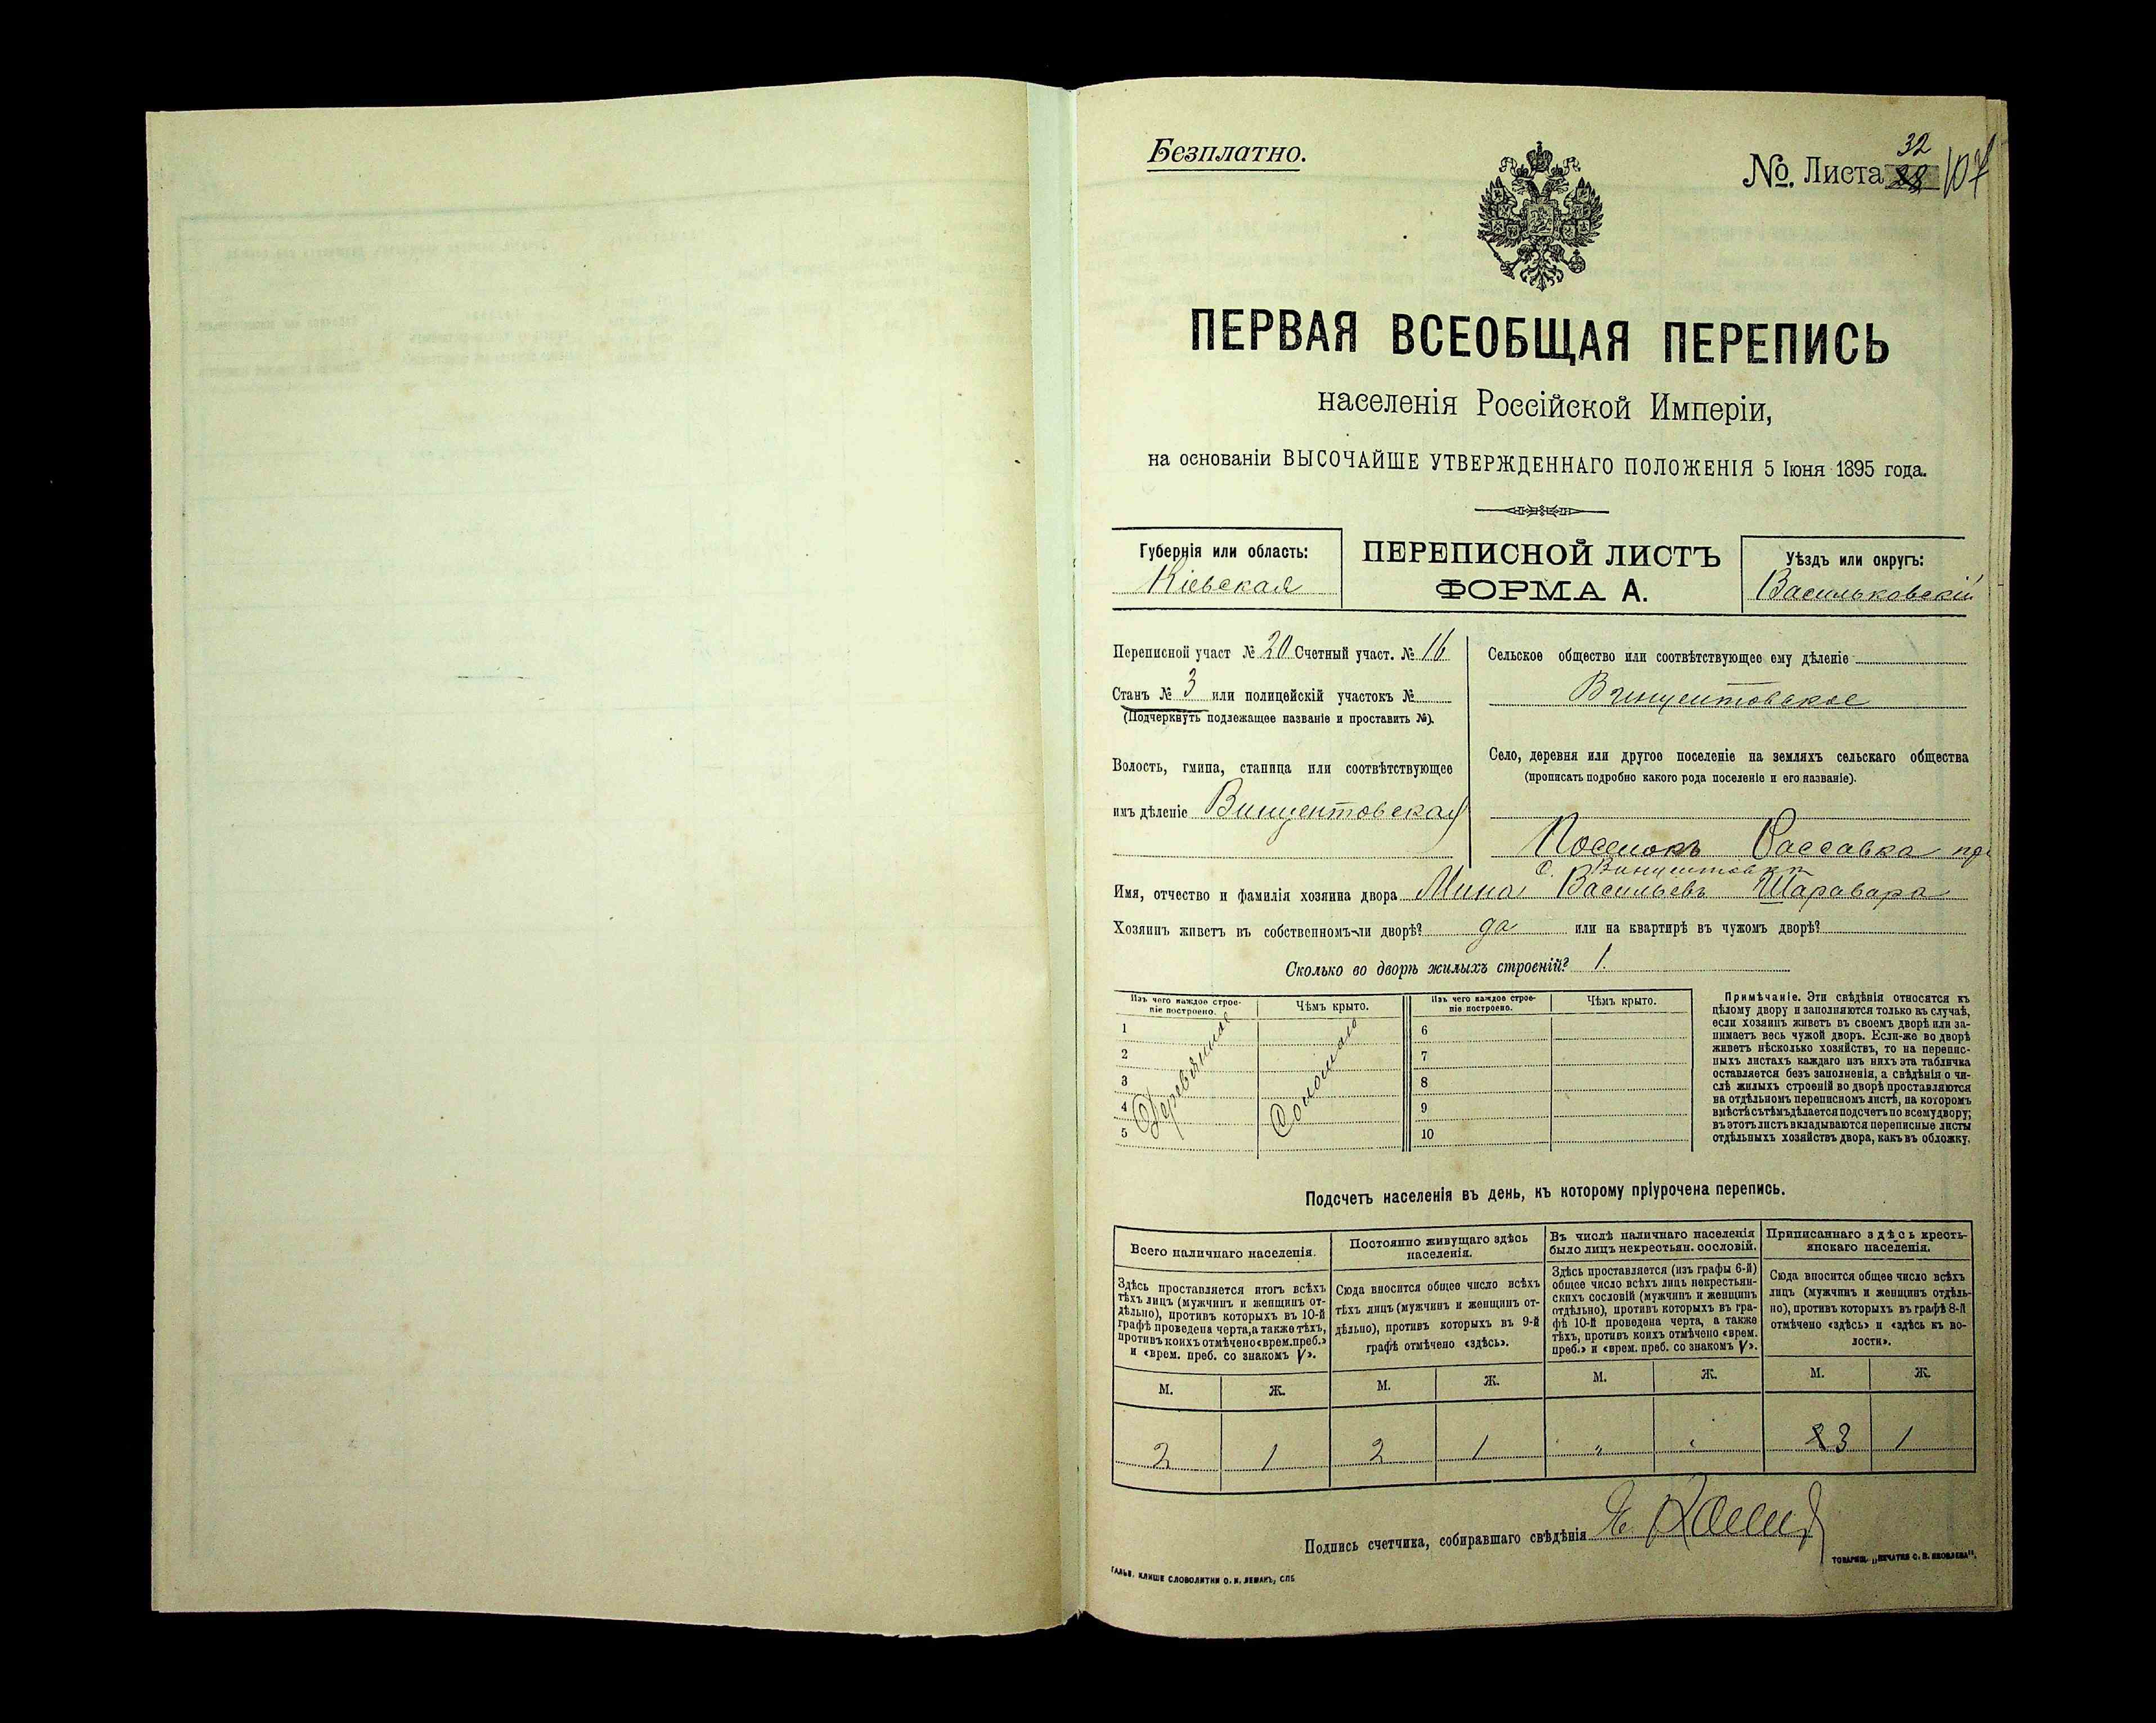 Безплатно.
32
№. Листа 28 107
ПЕРВАЯ ВСЕОБЩАЯ ПЕРЕПИСЬ
населенія Россійской Имперіи,
на основаніи ВЫСОЧАЙШЕ УТВЕРЖДЕННАГО ПОЛОЖЕНІЯ 5 Іюня 1895 года.
Губернія или область:
Кіевская
ПЕРЕПИСНОЙ ЛИСТЪ
ФОРМА А.
Уѣздъ или округъ:
Васильковскій
Переписной участ № 20 Счетный участ. № 16
Станъ № 3 или полицейскій участокъ №
(Подчеркнуть подлежащее названіе и проставить №).
Волость, гмина, станица или соотвѣтствующее
имъ дѣленіе Винцентовская
Сельское общество или соотвѣтствующее ему дѣленіе
Винцентовское
Село, деревня или другое поселеніе на земляхъ сельскаго общества
(прописать подробно какого рода поселеніе и его названіе).
Поселокъ Рассавка при
с. Винцентовкѣ
Имя, отчество и фамилія хозяина двора Мина Васильевъ Шаравара
Хозяинъ живетъ въ собственномъ-ли дворѣ? да или на квартирѣ въ чужомъ дворѣ?
Сколько во дворѣ жилыхъ строеній? 1.
Изъ чего каждое строе-
ніе построено.
Чѣмъ крыто.
Изъ чего каждое строе-
ніе построено.
Чѣмъ крыто.
1
2
3
4
5
Деревянное
Соломою
6
7
8
9
10
Примѣчаніе. Эти свѣдѣнія относятся къ
цѣлому двору и заполняются только въ случаѣ,
если хозяинъ живетъ въ своемъ дворѣ или за-
нимаетъ весь чужой дворъ. Если-же во дворѣ
живетъ нѣсколько хозяйствъ, то на перепис-
ныхъ листахъ каждаго изъ нихъ эта табличка
оставляется безъ заполненія, а свѣдѣнія о чи-
слѣ жилыхъ строеній во дворѣ проставляются
на отдѣльномъ переписномъ листѣ, на которомъ
вмѣстѣ съ тѣмъ дѣлается подсчетъ по всему двору;
въ этотъ листъ вкладываются переписные листы
отдѣльныхъ хозяйствъ двора, какъ въ обложку.
Подсчетъ населенія въ день, къ которому пріурочена перепись.
Всего наличнаго населенія.
Здѣсь проставляется итогъ всѣхъ
тѣхъ лицъ (мужчинъ и женщинъ от-
дѣльно), противъ которыхъ въ 10-й
графѣ проведена черта, а также тѣхъ,
противъ коихъ отмѣчено «врем. преб.»
и «врем. преб. со знакомъ V».
Постоянно живущаго здѣсь
населенія.
Сюда вносится общее число всѣхъ
тѣхъ лицъ (мужчинъ и женщинъ от-
дѣльно), противъ которыхъ въ 9-й
графѣ отмѣчено «здѣсь».
Въ числѣ наличнаго населенія
было лицъ некрестьян. сословій.
Здѣсь проставляется (изъ графы 6-й)
общее число всѣхъ лицъ некрестьян-
скихъ сословій (мужчинъ и женщинъ
отдѣльно), противъ которыхъ въ гра-
фѣ 10-й проведена черта, а также
тѣхъ, противъ коихъ отмѣчено «врем.
преб.» и «врем. преб. со знакомъ V».
Приписаннаго здѣсь кресть-
янскаго населенія.
Сюда вносится общее число всѣхъ
лицъ (мужчинъ и женщинъ отдѣль-
но), противъ которыхъ въ графѣ 8-й
отмѣчено «здѣсь» и «здѣсь къ во-
лости».
М. Ж. М. Ж. М. Ж. М. Ж.
2 1 2 1 " " 2 3 1
Подпись счетчика, собиравшаго свѣдѣнія
ГАЛЬВ. КЛИШЕ СЛОВОЛИТНИ О. И. ЛЕМАНЪ, СПБ
ТОВАРИЩ. „ПЕЧАТНЯ С. П. ЯКОВЛЕВА“.